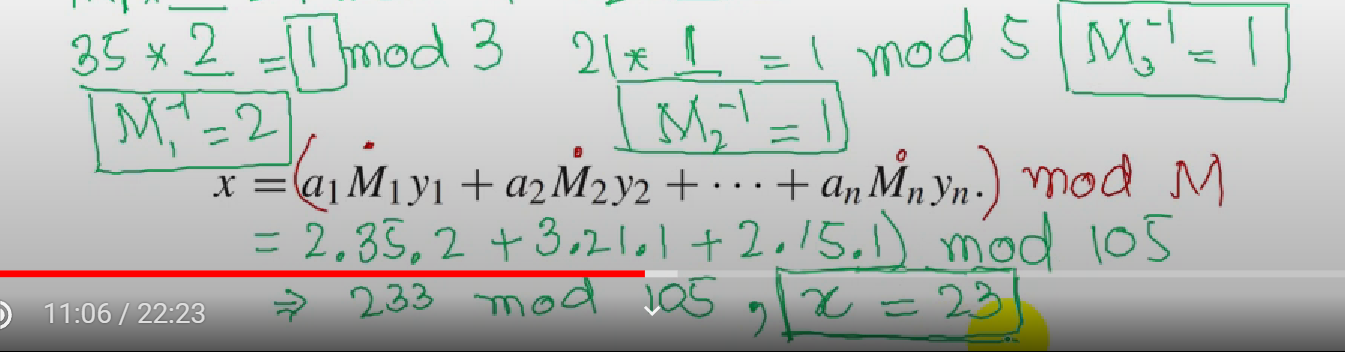 35 * 2 = 1 mod 3 21 * 1 = 1 mod 5 M₃⁻¹ = 1
M₁⁻¹ = 2 M₂⁻¹ = 1
x = (a₁M₁y₁ + a₂M₂y₂ + ··· + aₙMₙyₙ.) mod M
= 2.35.2 + 3.21.1 + 2.15.1) mod 105
⇒ 233 mod 105, x = 23
11:06 / 22:23